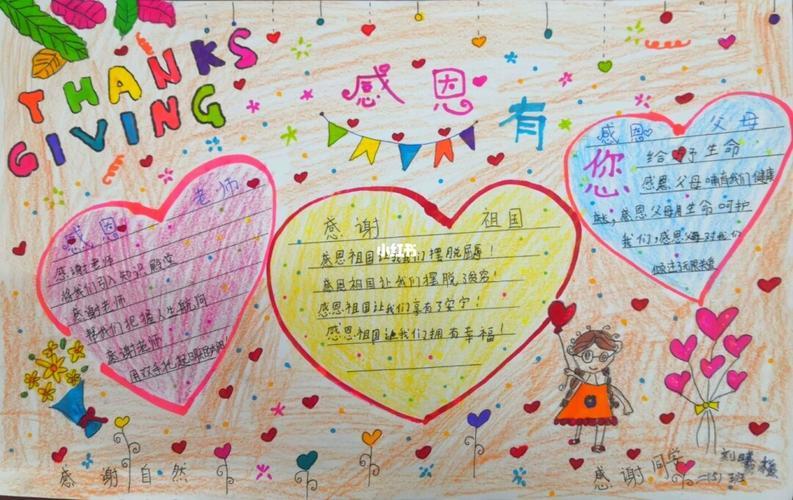 THANKS
GIVING
感恩
有
您
感恩 老师
感谢老师
将我们引入知识殿堂
感谢老师
帮我们把握人生航向
感谢老师
用双手托起
感谢 祖国
感恩祖国让我们摆脱屈辱!
感恩祖国让我们摆脱了贫穷!
感恩祖国让我们享有了安宁!
感恩祖国让我们拥有幸福!
小红书
感恩 父母
给予生命
感恩父母哺育我们健康
感恩父母用生命呵护
我们,感恩父母对我们
感谢自然
感谢同学
二(5)班